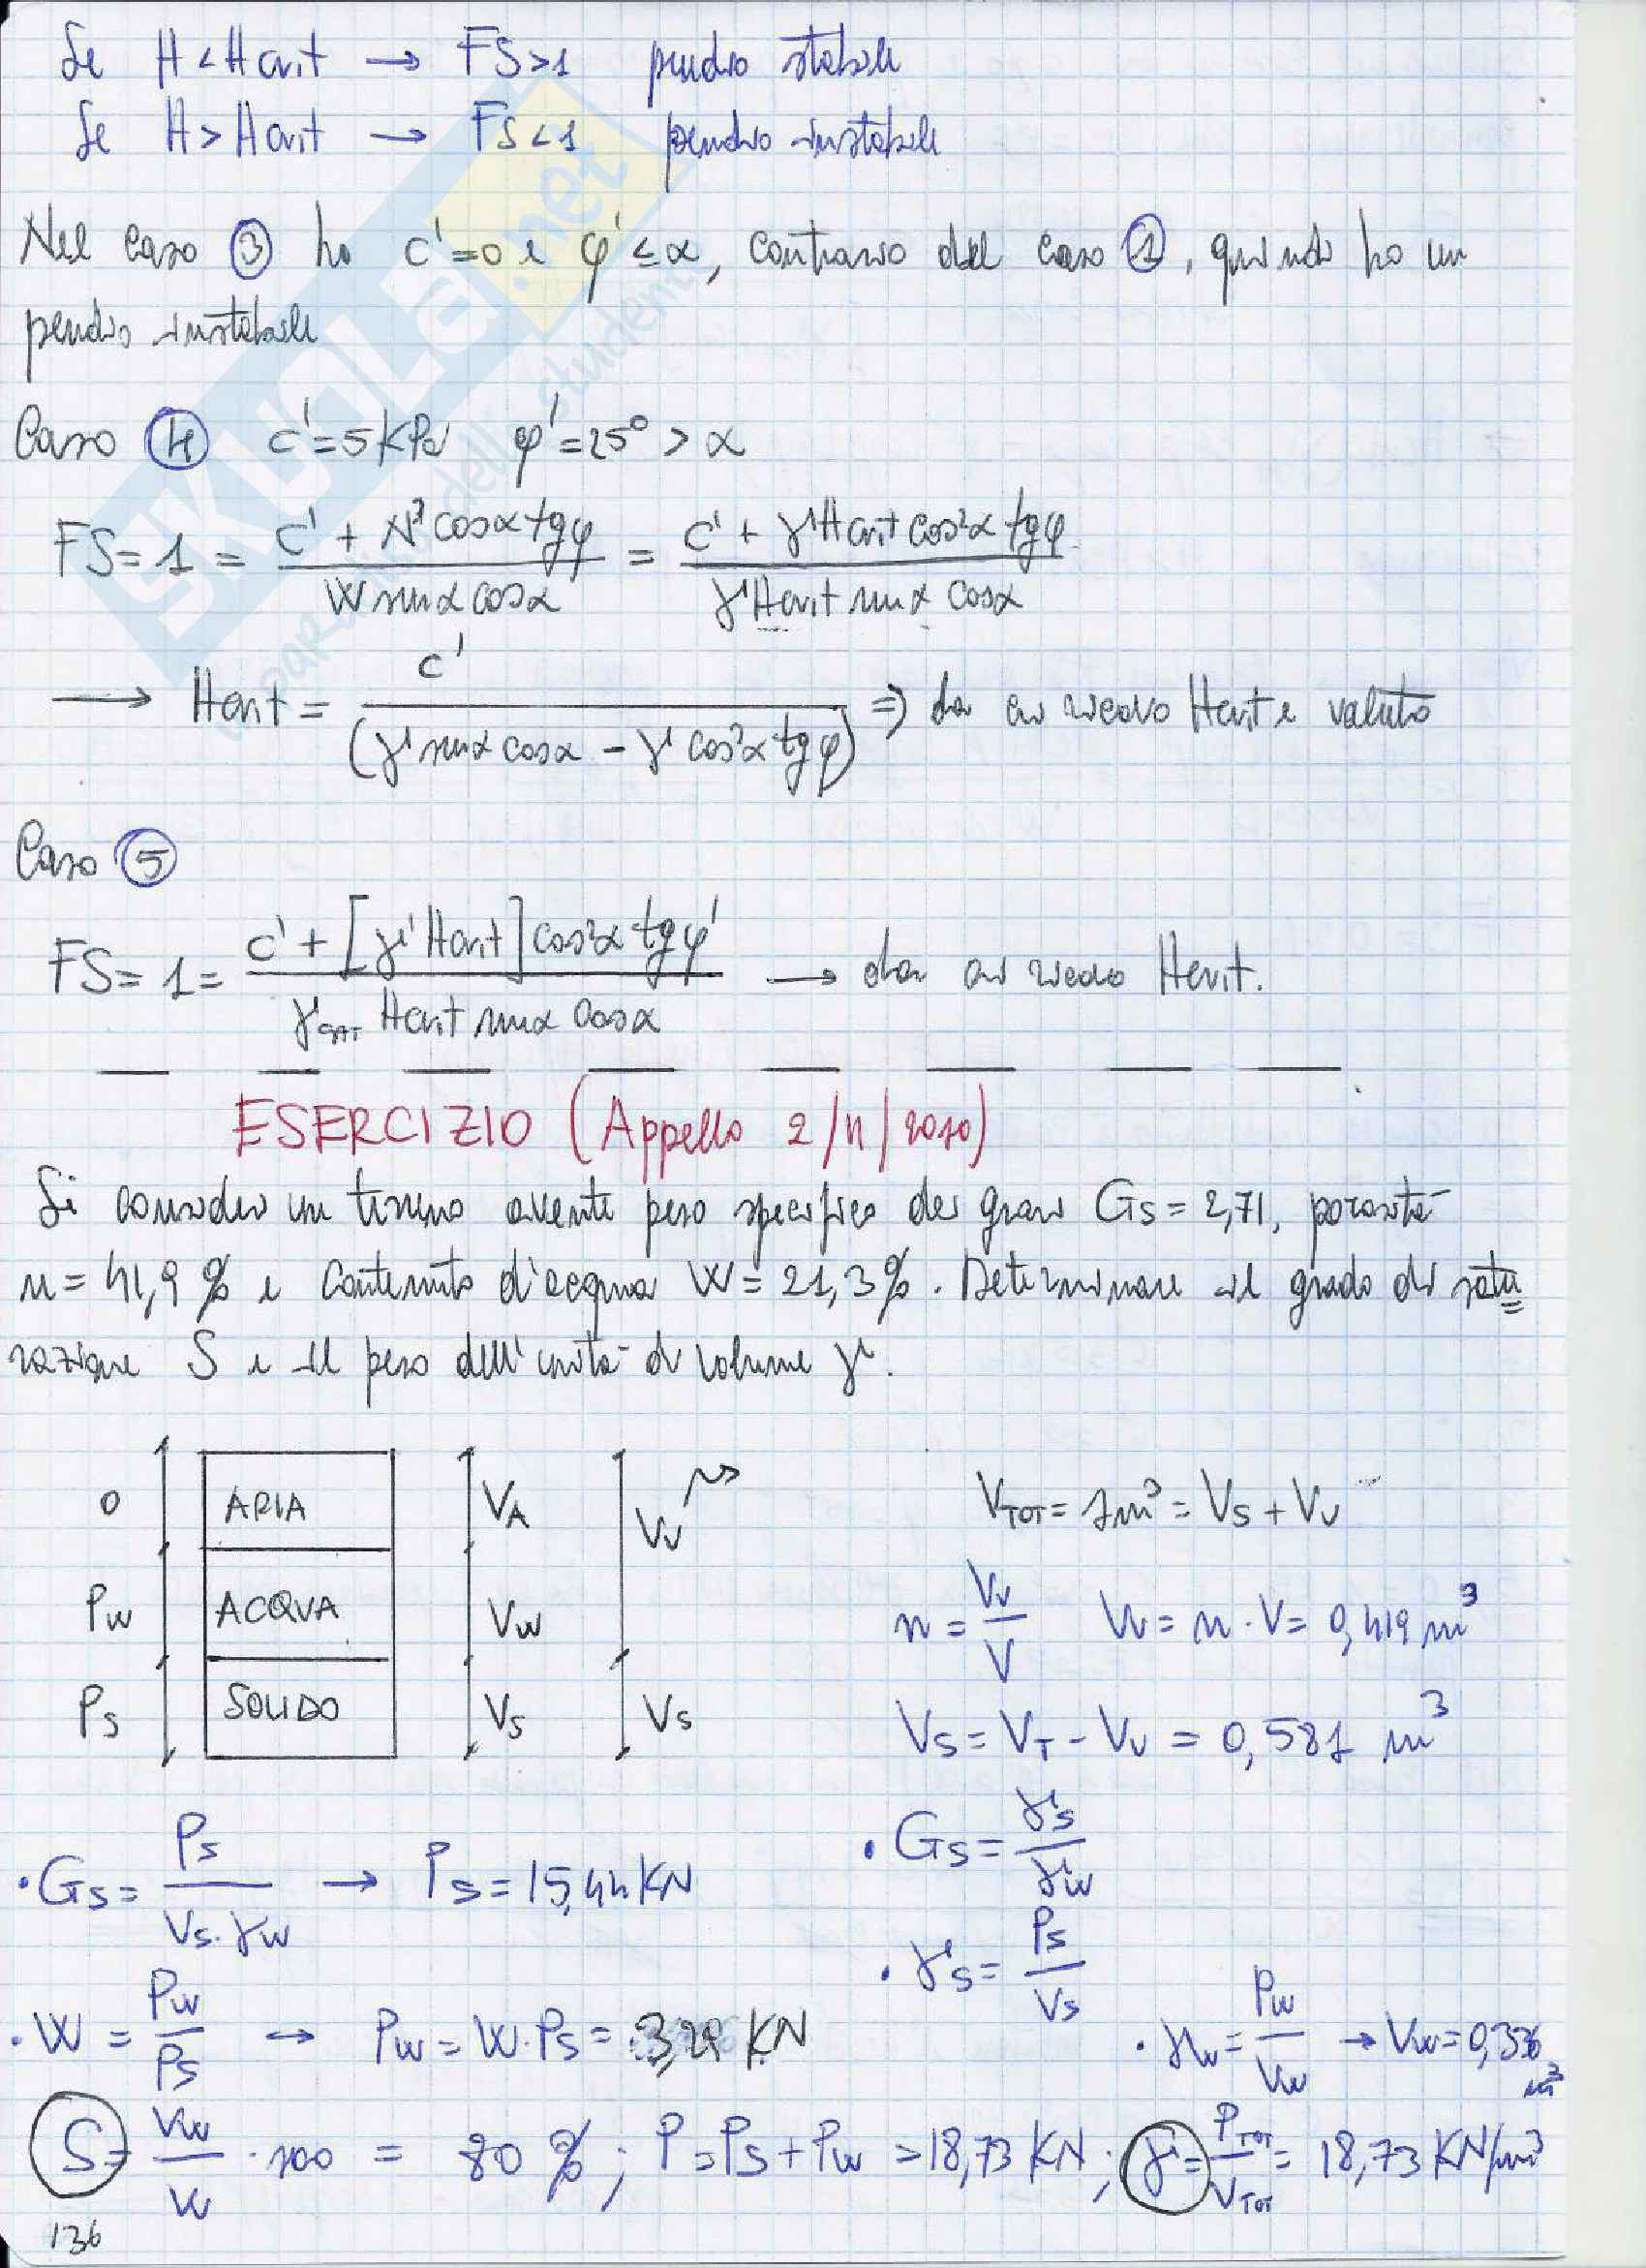 Se H < Hcrit → FS > 1 pendio stabile
Se H > Hcrit → FS < 1 pendio instabile
Nel caso ③ ho c' = 0 e φ' ≤ α, contrario del caso ①, quindi ho un
pendio instabile
Caso ④ c' = 5 kPa φ' = 25° > α
FS = 1 = (c' + N' cosα tgφ) / (W sinα cosα) = (c' + γ Hcrit cos²α tgφ) / (γ Hcrit sinα cosα)
→ Hcrit = c' / (γ sinα cosα - γ cos²α tgφ) ⇒ da cui ricavo Hcrit e valuto
Caso ⑤
FS = 1 = (c' + [γ' Hcrit] cos²α tgφ') / (γsat Hcrit sinα cosα) → da cui ricavo Hcrit.
ESERCIZIO (Appello 2/11/2010)
Si consideri un terreno avente peso specifico dei grani Gs = 2,71, porosità
n = 41,9 % e contenuto d'acqua W = 21,3 %. Determinare il grado di satu
razione S e il peso dell'unità di volume γ.
0 ARIA VA Vv
Pw ACQUA Vw
Ps SOLIDO Vs Vs
VTOT = 1m³ = Vs + Vv
n = Vv / V Vv = n · V = 0,419 m³
Vs = VT - Vv = 0,581 m³
· Gs = Ps / (Vs · γw) → Ps = 15,44 KN
· Gs = γs / γw
· γs = Ps / Vs
· W = Pw / Ps → Pw = W · Ps = 3,29 KN
· γw = Pw / Vw → Vw = 0,336 m³
S = Vw / Vv · 100 = 80 % ; P = Ps + Pw = 18,73 KN ; γ = PTOT / VTOT = 18,73 KN/m³
136
SKUOLA.net